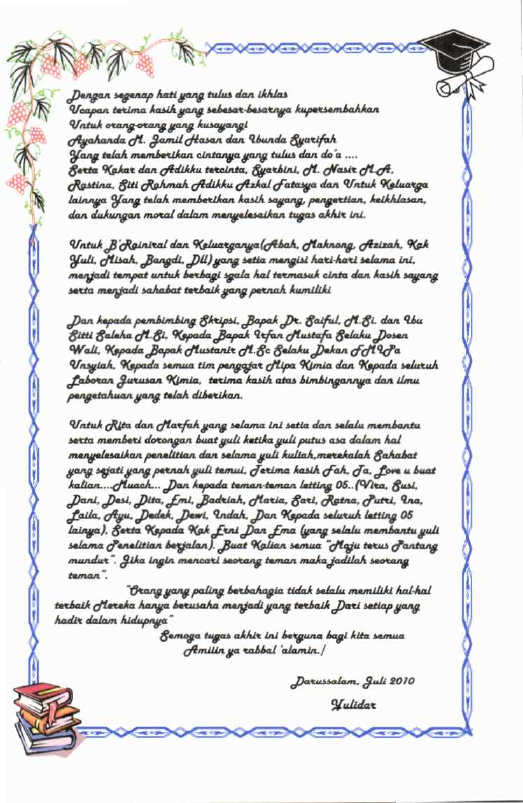 Dengan segenap hati yang tulus dan ikhlas
Ucapan terima kasih yang sebesar-besarnya kupersembahkan
Untuk orang-orang yang kusayangi
Ayahanda M. Jamil Hasan dan Ibunda Syarifah
Yang telah memberikan cintanya yang tulus dan do'a ....
Serta Kakar dan Adikku tercinta, Syarbini, M. Nasir M.A,
Rastina, Siti Rahmah Adikku Azkal Fatasya dan Untuk Keluarga
lainnya Yang telah memberikan kasih sayang, pengertian, keikhlasan,
dan dukungan moral dalam menyelesaikan tugas akhir ini.
Untuk B'Rainiral dan Keluarganya(Abah, Maknong, Azizah, Kak
Yuli, Misah, Bangdi, Dll) yang setia mengisi hari-hari selama ini,
menjadi tempat untuk berbagi sgala hal termasuk cinta dan kasih sayang
serta menjadi sahabat terbaik yang pernah kumiliki
Dan kepada pembimbing Skripsi, Bapak Dr. Saiful, M.Si. dan Ibu
Sitti Saleha M.Si, Kepada Bapak Irfan Mustafa Selaku Dosen
Wali, Kepada Bapak Mustanir M.Sc Selaku Dekan FMIPA
Unsyiah, Kepada semua tim pengajar Mipa Kimia dan Kepada seluruh
Laboran Jurusan Kimia, terima kasih atas bimbingannya dan ilmu
pengetahuan yang telah diberikan.
Untuk Rita dan Marfah yang selama ini setia dan selalu membantu
serta memberi dorongan buat yuli ketika yuli putus asa dalam hal
menyelesaikan penelitian dan selama yuli kuliah,merekalah Sahabat
yang sejati yang pernah yuli temui, Terima kasih Fah, Ta. Love u buat
kalian....Muach... Dan kepada teman-teman letting 05..(Vira, Susi,
Dani, Desi, Dita, Emi, Badriah, Maria, Sari, Ratna, Putri, Ina,
Laila, Ayu, Dedek, Dewi, Indah, Dan Kepada seluruh letting 05
lainya), Serta Kepada Kak Erni Dan Ema (yang selalu membantu yuli
selama Penelitian berjalan). Buat Kalian semua "Maju terus Pantang
mundur". Jika ingin mencari seorang teman maka jadilah seorang
teman".
"Orang yang paling berbahagia tidak selalu memiliki hal-hal
terbaik Mereka hanya berusaha menjadi yang terbaik Dari setiap yang
hadir dalam hidupnya"
Semoga tugas akhir ini berguna bagi kita semua
Amiiin ya rabbal 'alamin./
Darussalam, Juli 2010
Yulidar